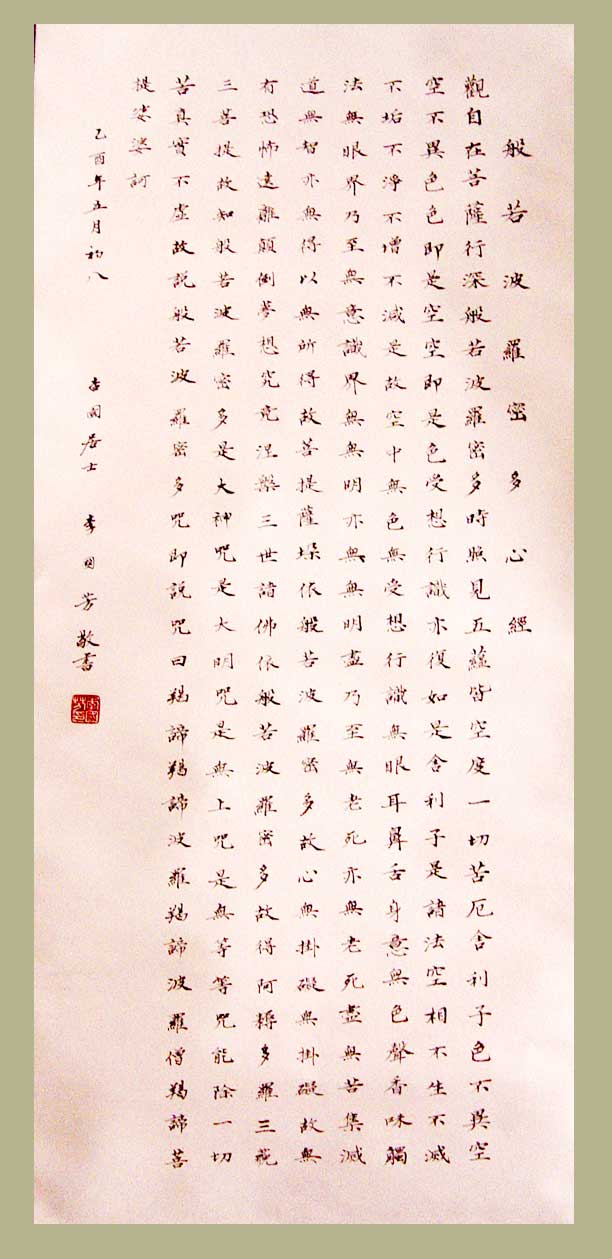 般若波羅密多心經
觀自在菩薩行深般若波羅密多時照見五蘊皆空度一切苦厄舍利子色不異空
空不異色色即是空空即是色受想行識亦復如是舍利子是諸法空相不生不滅
不垢不淨不增不減是故空中無色無受想行識無眼耳鼻舌身意無色聲香味觸
法無眼界乃至無意識界無無明亦無無明盡乃至無老死亦無老死盡無苦集滅
道無智亦無得以無所得故菩提薩埵依般若波羅密多故心無掛礙無掛礙故無
有恐怖遠離顛倒夢想究竟涅槃三世諸佛依般若波羅密多故得阿耨多羅三藐
三菩提故知般若波羅密多是大神咒是大明咒是無上咒是無等等咒能除一切
苦真實不虛故説般若波羅密多咒即説咒曰羯諦羯諦波羅羯諦波羅僧羯諦菩
提娑婆訶
乙酉年五月初八
居士 李国芳敬書